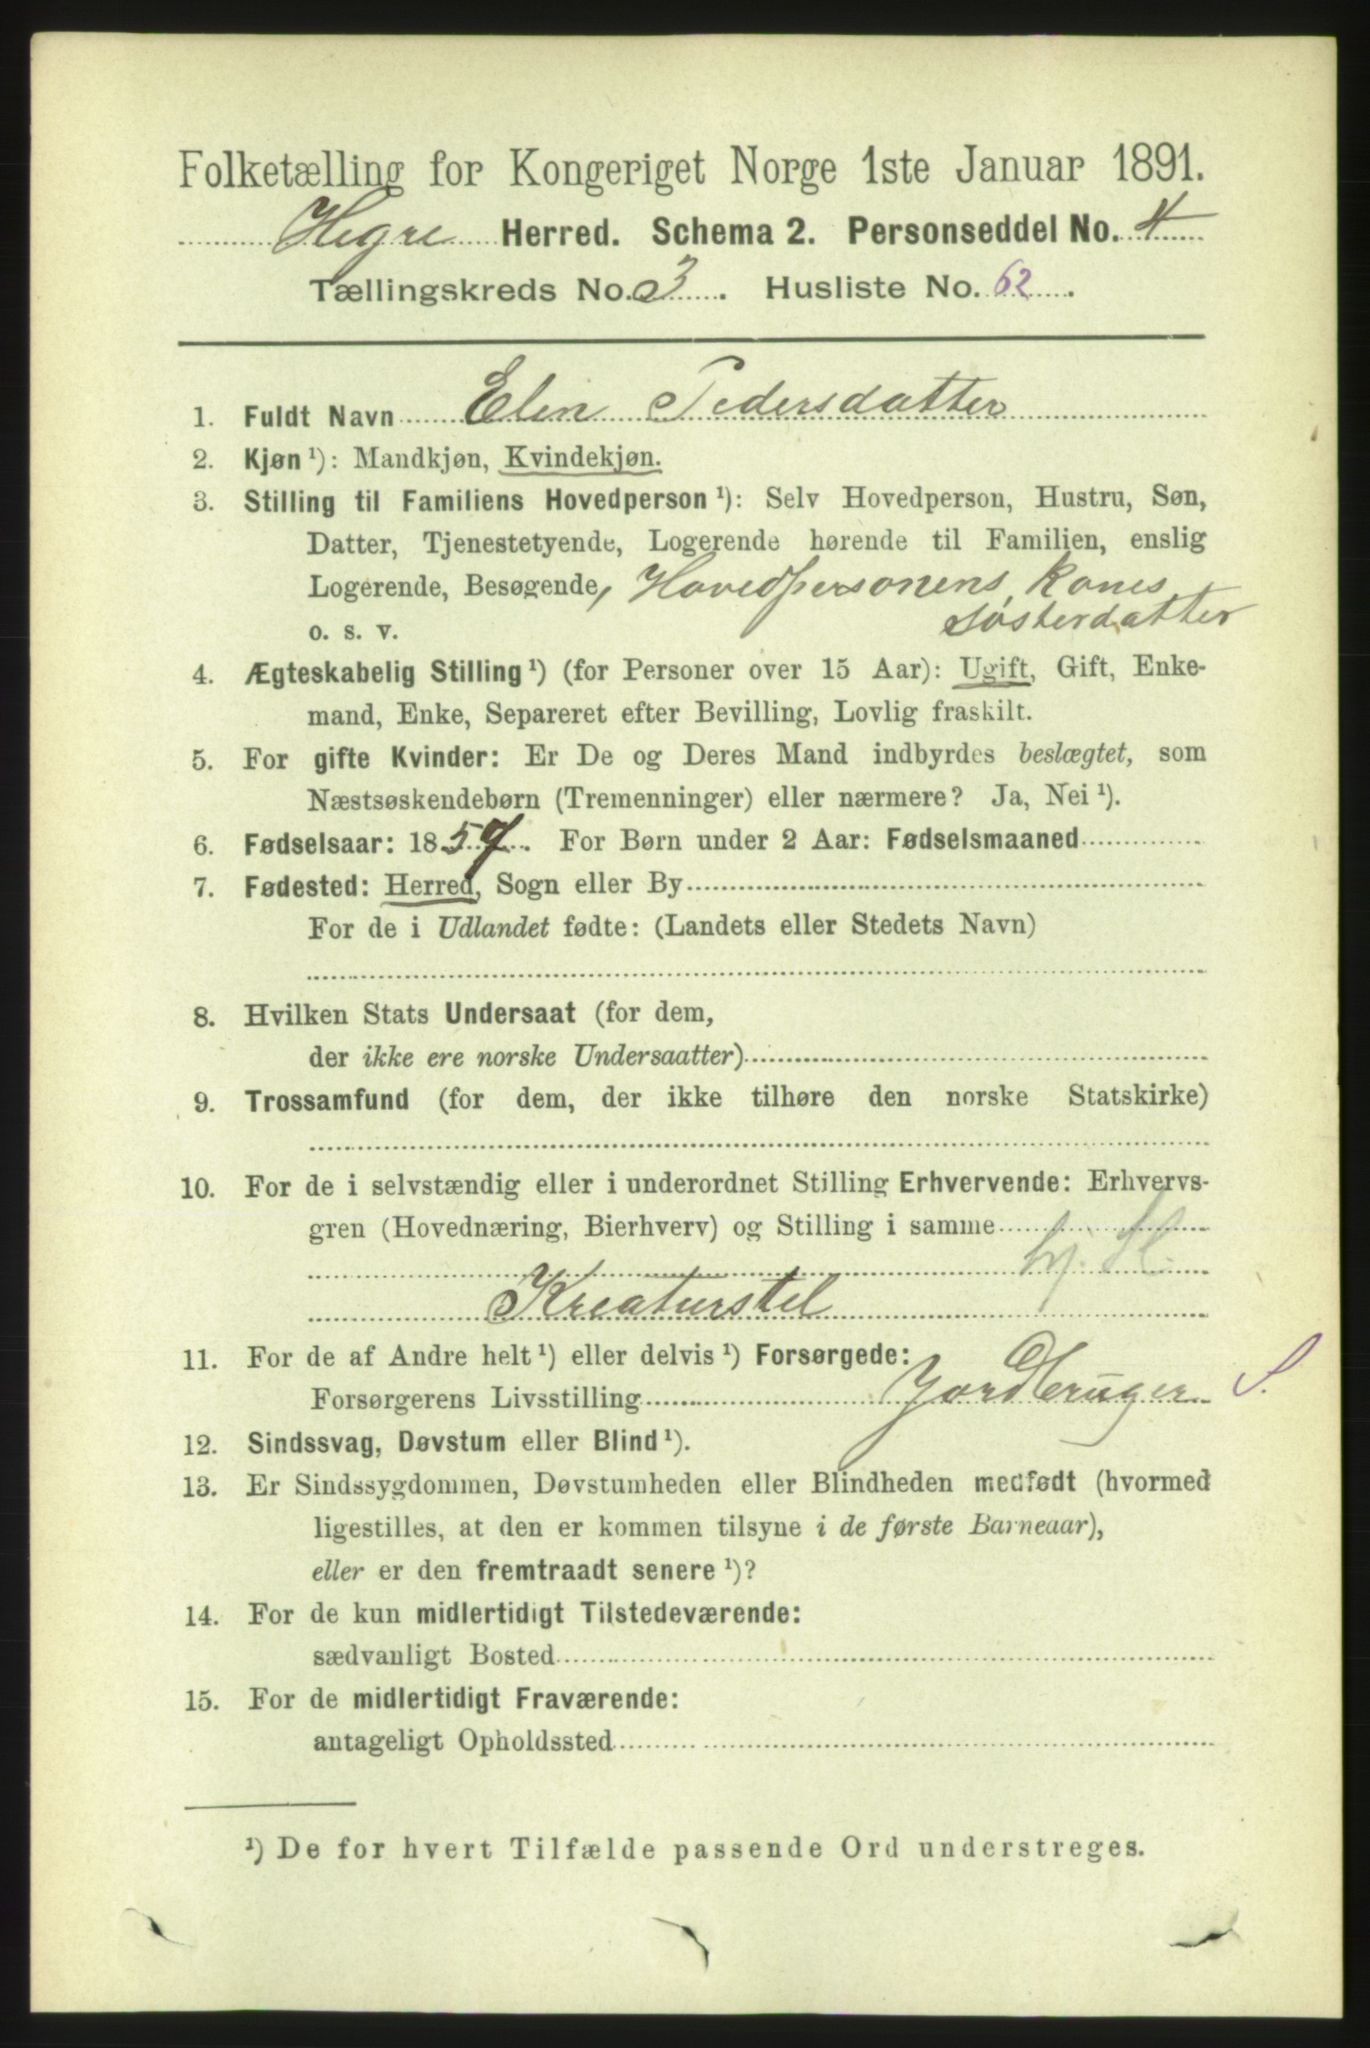 Folketælling for Kongeriget Norge 1ste Januar 1891.
Hegre Herred. Schema 2. Personseddel No. 4
Tællingskreds No. 3. Husliste No. 62.
1. Fuldt Navn Elen Pedersdatter
2. Kjøn ¹): Mandkjøn, Kvindekjøn.
3. Stilling til Familiens Hovedperson ¹): Selv Hovedperson, Hustru, Søn,
Datter, Tjenestetyende, Logerende hørende til Familien, enslig
Logerende, Besøgende, Hovedpersonens Kones
o. s. v. Søsterdatter
4. Ægteskabelig Stilling ¹) (for Personer over 15 Aar): Ugift, Gift, Enke-
mand, Enke, Separeret efter Bevilling, Lovlig fraskilt.
5. For gifte Kvinder: Er De og Deres Mand indbyrdes beslægtet, som
Næstsøskendebørn (Tremenninger) eller nærmere? Ja, Nei ¹).
6. Fødselsaar: 1857. For Børn under 2 Aar: Fødselsmaaned
7. Fødested: Herred, Sogn eller By
For de i Udlandet fødte: (Landets eller Stedets Navn)
8. Hvilken Stats Undersaat (for dem,
der ikke ere norske Undersaatter)
9. Trossamfund (for dem, der ikke tilhøre den norske Statskirke)
10. For de i selvstændig eller i underordnet Stilling Erhvervende: Erhvervs-
gren (Hovednæring, Bierhverv) og Stilling i samme
Kreaturstel
11. For de af Andre helt ¹) eller delvis ¹) Forsørgede:
Forsørgerens Livsstilling Jordbruger S.
12. Sindssvag, Døvstum eller Blind ¹).
13. Er Sindssygdommen, Døvstumheden eller Blindheden medfødt (hvormed
ligestilles, at den er kommen tilsyne i de første Barneaar),
eller er den fremtraadt senere ¹)?
14. For de kun midlertidigt Tilstedeværende:
sædvanligt Bosted
15. For de midlertidigt Fraværende:
antageligt Opholdssted
¹) De for hvert Tilfælde passende Ord understreges.